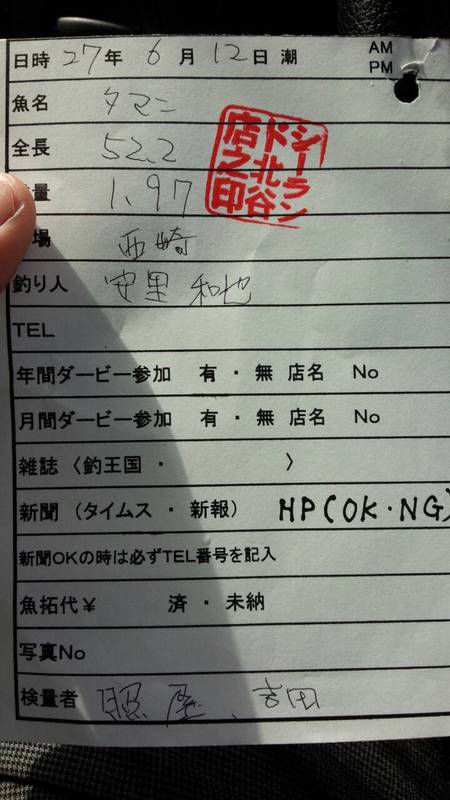 日時 27年 6月 12日 潮 AM PM
魚名 タマン
全長 52.2
量 1.97
場 西崎
シーランド北谷店之印
釣り人 安里 和也
TEL
年間ダービー参加 有・無 店名 No
月間ダービー参加 有・無 店名 No
雑誌〈釣王国・ 〉
新聞(タイムス・新報) HP(OK・NG)
新聞OKの時は必ずTEL番号を記入
魚拓代¥ 済・未納
写真No
検量者 照屋、吉田